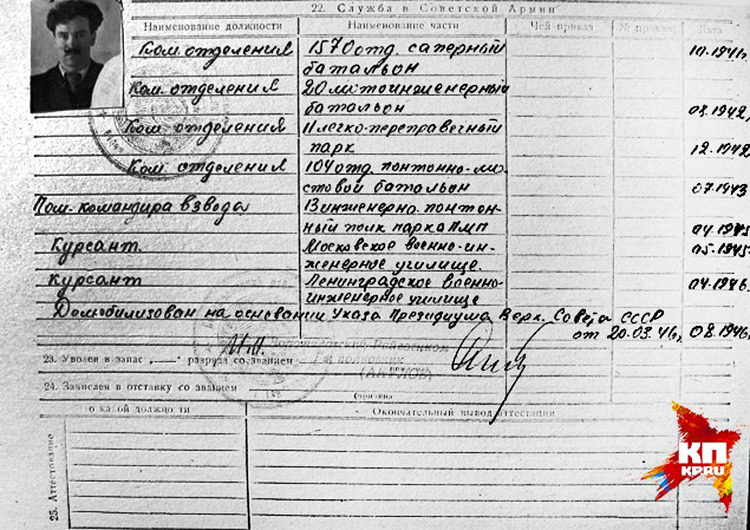 22. Служба в Советской Армии
Наименование должности Наименование части Чей приказ № приказа Дата
Ком. отделения 1570 отд. саперный 10.1941г.
батальон
Ком. отделения 20 мотоинженерный
батальон 08.1942г
Ком. отделения 11 легко-переправочный
парк 12.1942
Ком. отделения 104 отд. понтонно-мо-
стовой батальон 07.1943
Пом. командира взвода 13 инженерно понтон-
ный полк парка НМП 04.1945
Курсант. Московское военно-ин- 05.1945
женерное училище.
Курсант Ленинградское военно- 04.1946
инженерное училище
Демобилизован на основании Указа Президиума Верх. Совета СССР
от 20.03.46г. 08.1946г
23. Уволен в запас „—“ разряда со званием
Райвоенком
полковник
24. Зачислен в отставку со званием
о какой должности Окончательный вывод аттестации
25. Аттестование
КП
KP.RU